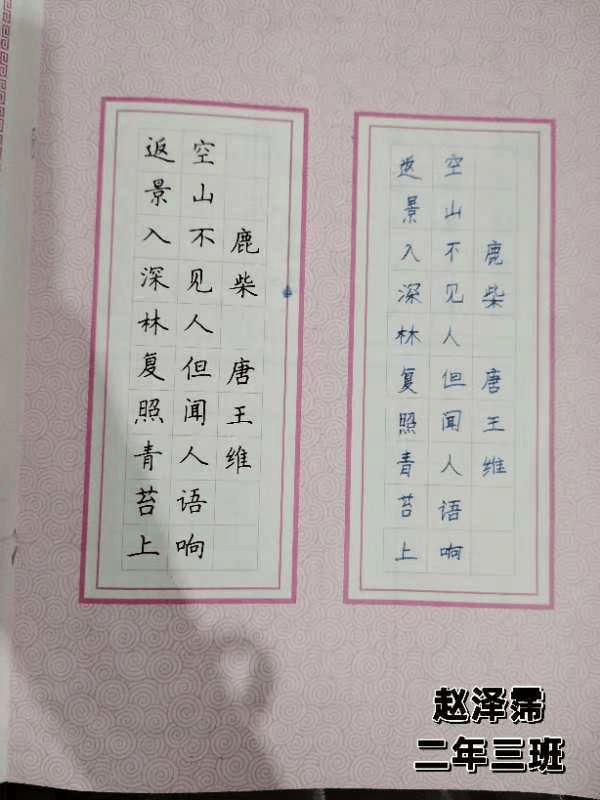 鹿柴 唐王维
空山不见人但闻人语响
返景入深林复照青苔上
鹿柴 唐王维
空山不见人但闻人语响
返景入深林复照青苔上
赵泽霈
二年三班